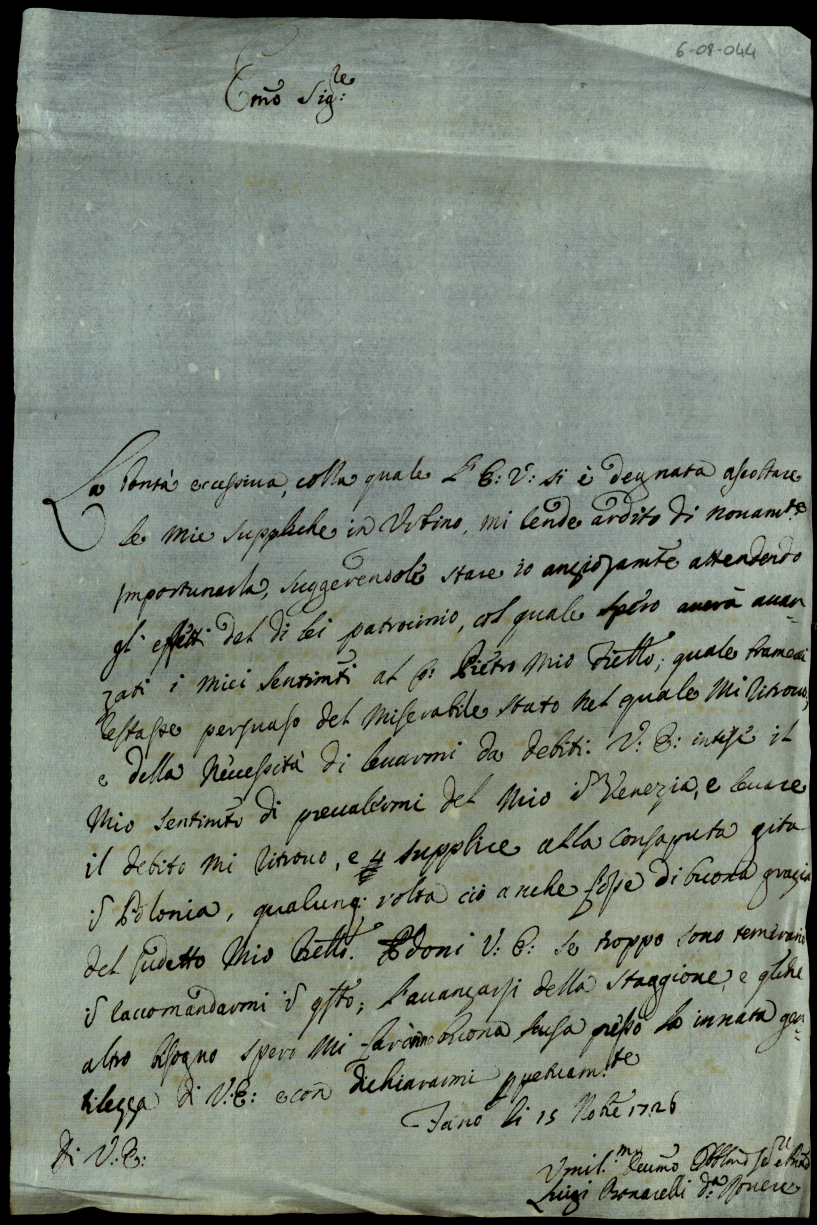 6-08-044
Emo Sig:re
La bontà eccessiva, colla quale l'E: V: si è degnata ascoltare
le mie suppliche in Urbino, mi rende ardito di novamte
importunarla, suggerendole stare io anziozamte attendendo
gl' effetti del di lei patrocinio, col quale spero averà avan-
zati i miei sentimti al P: Pietro mio Frello; quale
restasse persuaso del miserabile stato nel quale mi ritrovo,
e della necessità di levarmi da debiti. V: E: intese il
mio sentimto di prevalermi del mio Venezia, e levare
il debito mi ritrovo, e supplire alla consaputa gita
Polonia, qualunq: volta ciò anche fosse di buona grazia
del sudetto mio Frello. Pdoni V: E: se troppo sono temerario
raccomandarmi qsto; l'avanzarsi della staggione, e qlche
altro bisogno spero mi faranno buona scusa presso la innata gen-
tilezza di V: E: e con dichiararmi
Fano li 15 Nobre 1726
Di V: E:
Umil:mo Devmo
Luigi Bonarelli Della Rovere